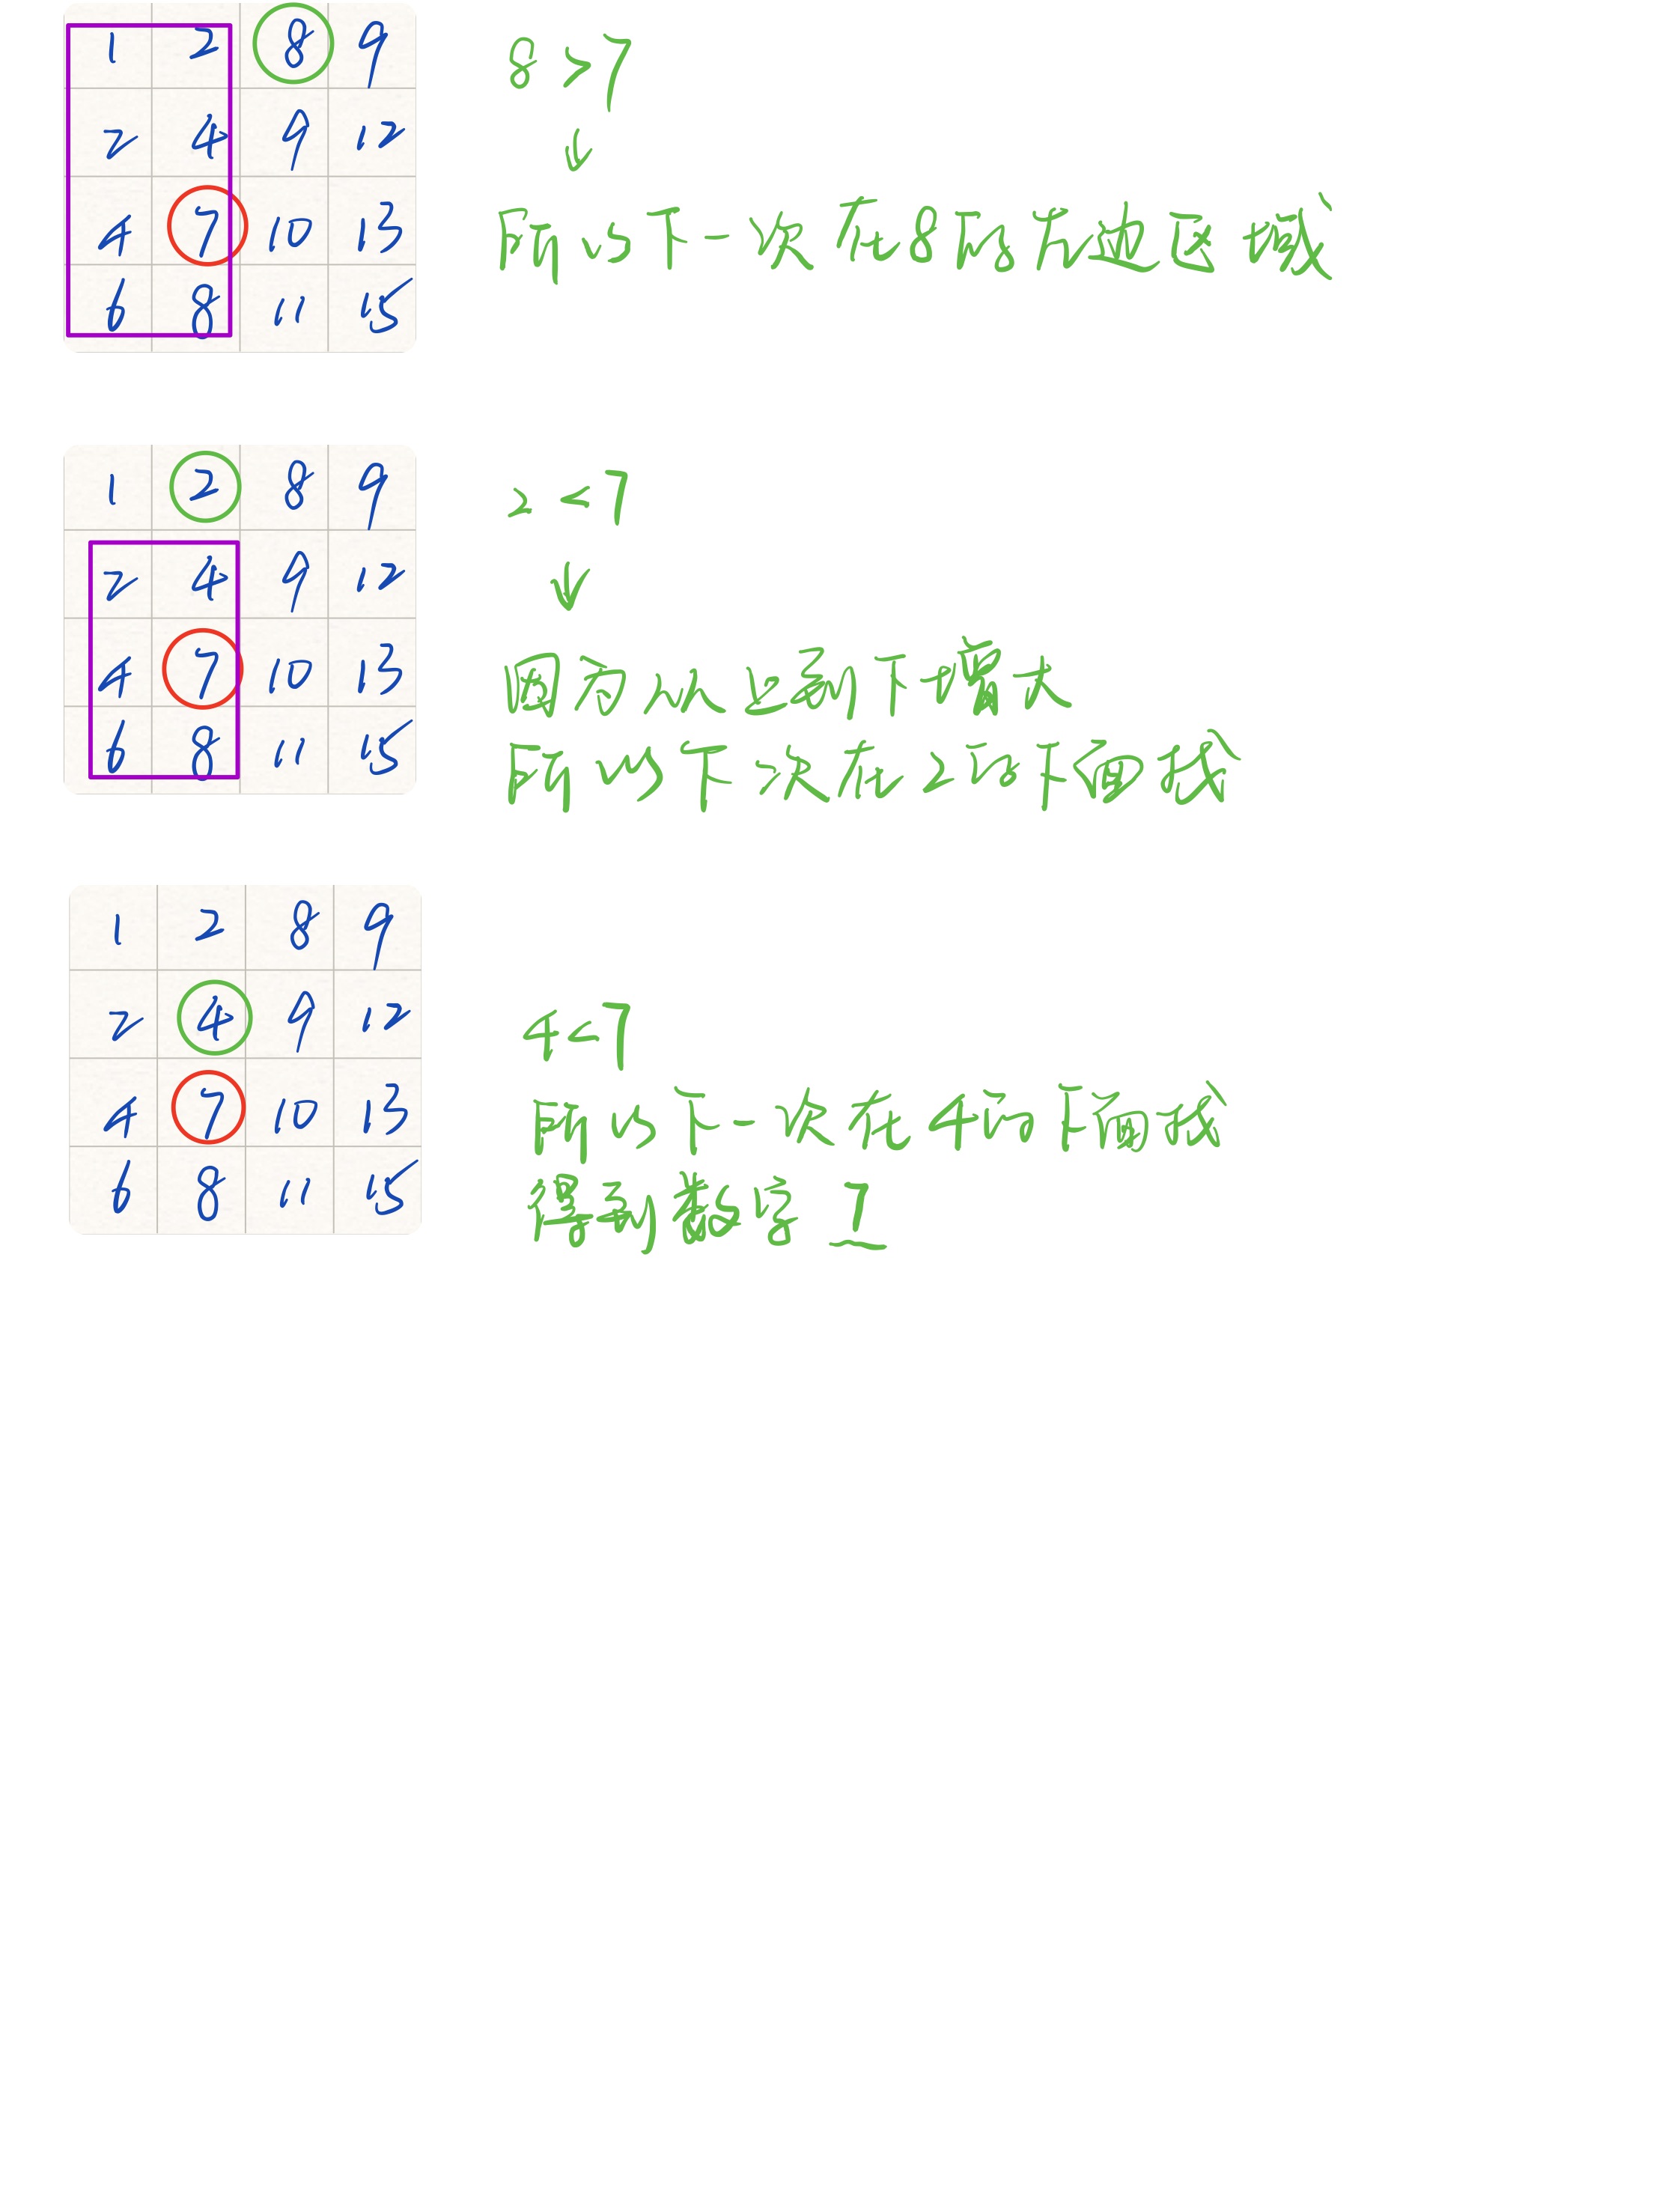 1 2 8 9
2 4 9 12
4 7 10 13
6 8 11 15
8 > 7
所以下一次在8的左边区域
1 2 8 9
2 4 9 12
4 7 10 13
6 8 11 15
2 < 7
因为从上到下增大
所以下次在2的下面找
1 2 8 9
2 4 9 12
4 7 10 13
6 8 11 15
4 < 7
所以下一次在4的下面找
得到数字 7